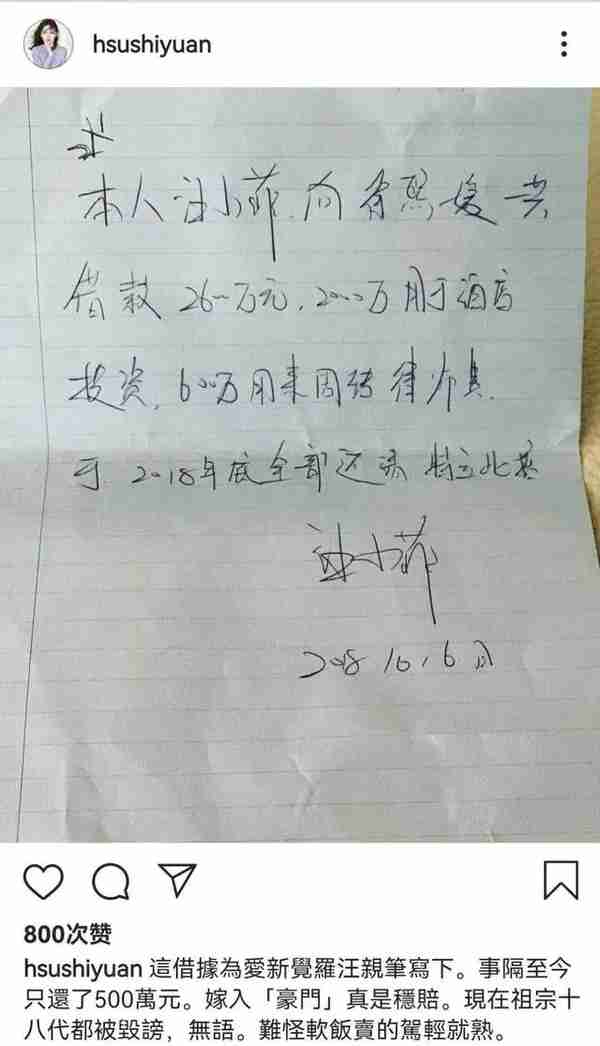 hsushiyuan
本人汪小菲,向徐熙媛共
借款 2600万元,2000万用于酒店
投资,600万用来周转
于 2018年底全部还清 特立此据
汪小菲
2018.10.6日
800次赞
hsushiyuan 這借據為愛新覺羅汪親筆寫下。事隔至今
只還了500萬元。嫁入「豪門」真是穩賠。現在祖宗十
八代都被毀謗，無語。難怪軟飯賣的駕輕就熟。